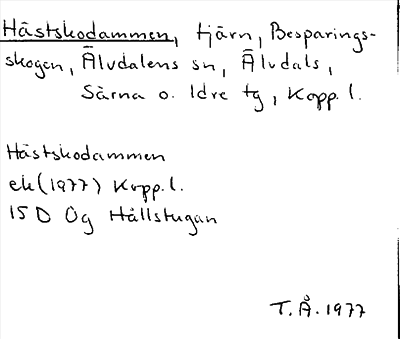 Hästskodammen, tjärn, Besparings-
skogen, Älvdalens sn, Älvdals,
Särna o. Idre tg, Kopp. l.
Hästskodammen
ek (1977) Kopp. l.
15 D Og Hållstugan
T. Å. 1977